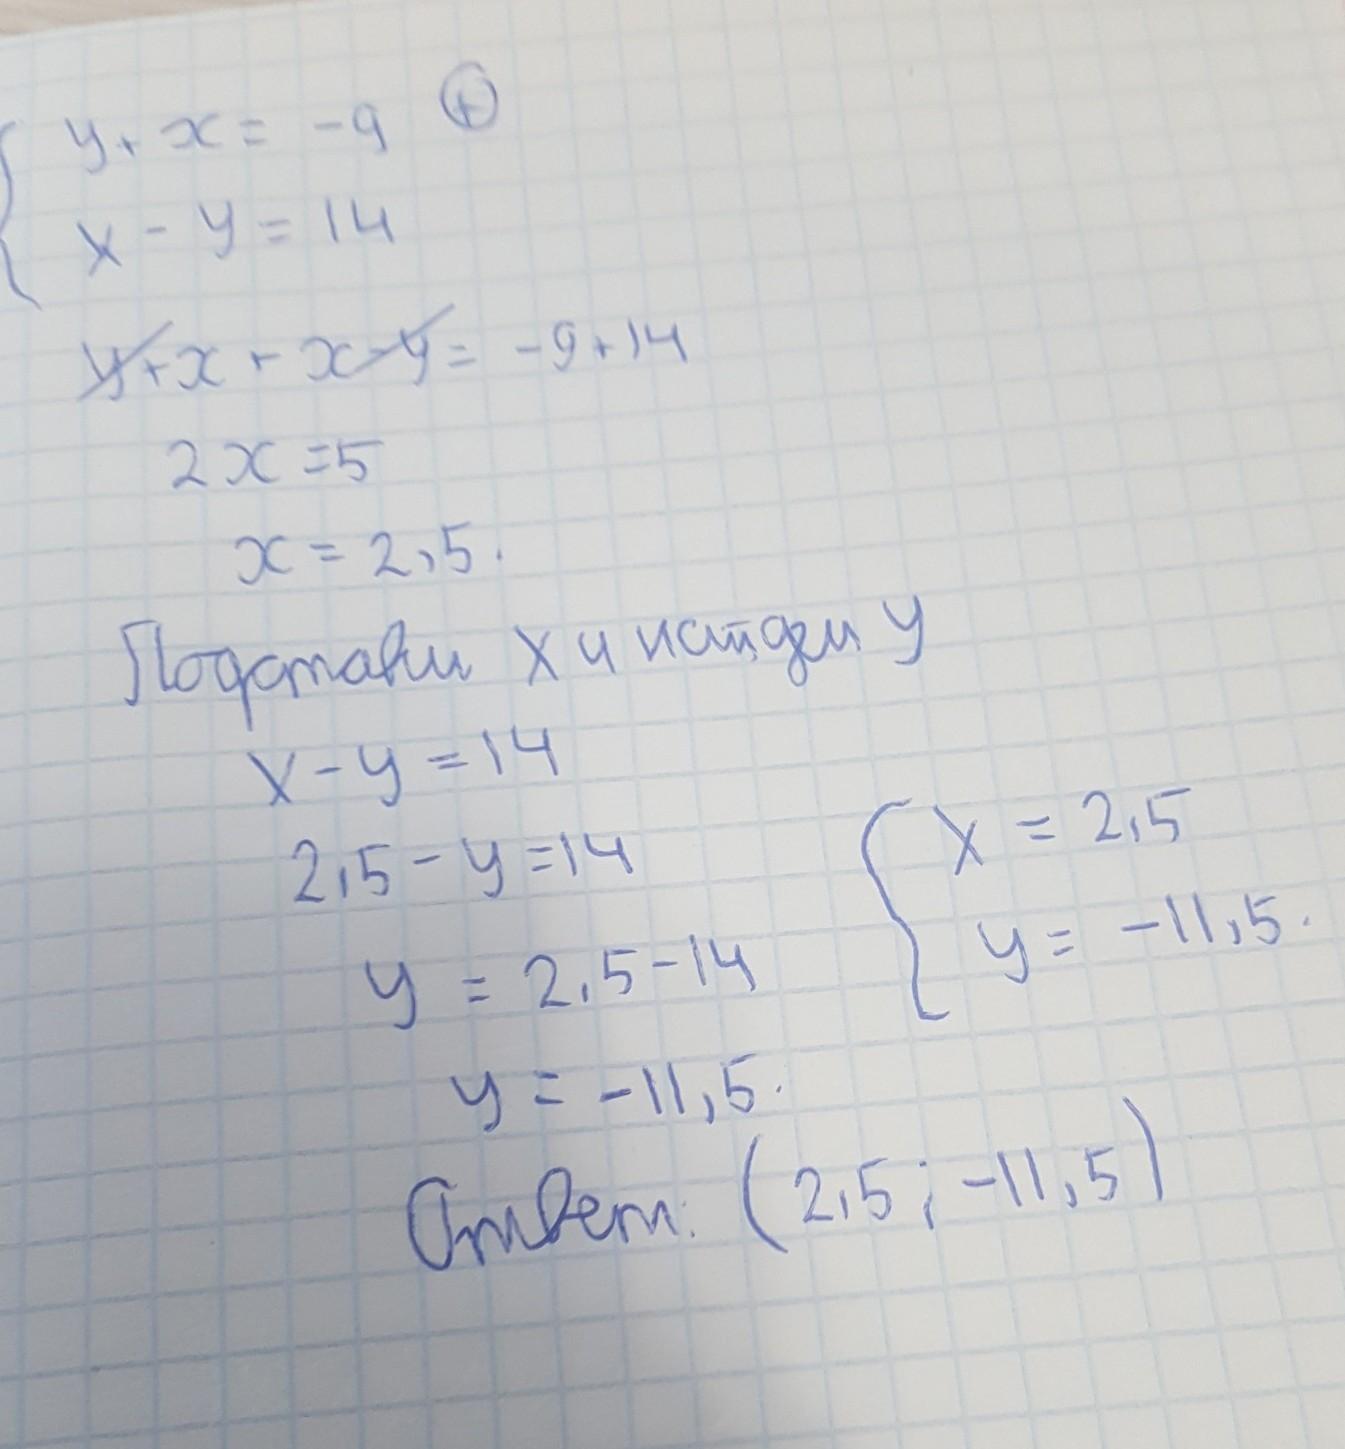 y + x = -9 ⊕
x - y = 14
y + x + x - y = -9 + 14
2x = 5
x = 2,5.
Подставим x и найдем y
x - y = 14
2,5 - y = 14
y = 2,5 - 14
y = -11,5.
x = 2,5
y = -11,5.
Ответ: (2,5; -11,5)